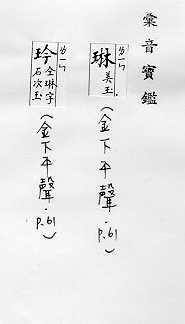 彙音寶鑑
琳 ㄌㄧㄣ 美玉
(金下平聲.p.61)
玪 ㄌㄧㄣ 仝琳字 石次玉
(金下平聲.p.61)